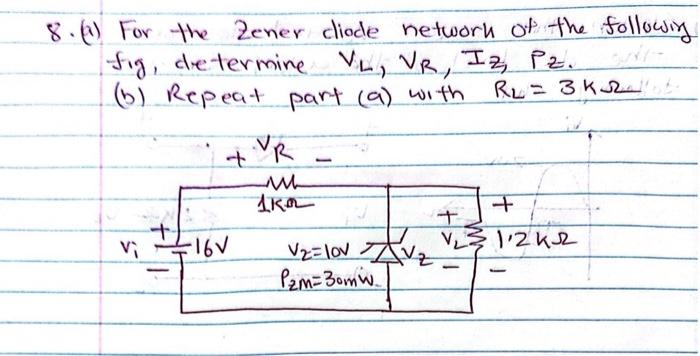 8. (a) For the Zener diode network of the following
fig, determine VL, VR, IZ, PZ.
(b) Repeat part (a) with RL = 3KΩ
+ VR -
1KΩ
Vi
+
-
16V
VZ=10V
PZM=30mW
VZ
+
VL
-
+
1.2KΩ
-